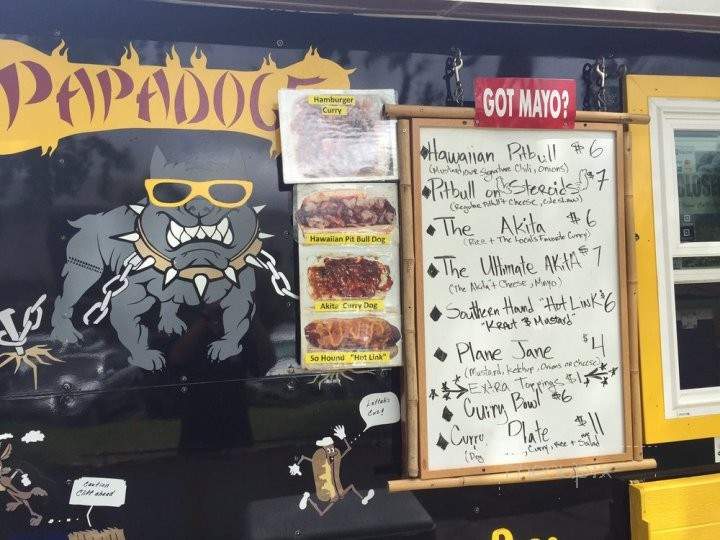 PAPADOG
Hamburger
Curry
Hawaiian Pit Bull Dog
Akita Curry Dog
So Hound "Hot Link"
GOT MAYO?
Hawaiian Pitbull $6
(Mustard, our Signature Chili, Onions)
Pitbull on Steroids $7
(Regular Pitbull + Cheese, coleslaw)
The Akita $6
(Rice + The Locals Favorite Curry)
The Ultimate AkitA $7
(The Akita + Cheese, Mayo)
Southern Hound "Hot Link" $6
"Kraut & Mustard"
Plane Jane $4
(Mustard, Ketchup, Onions or cheese)
Extra Toppings $1
Curry Bowl $6
Curry Plate $11
(Dog Curry, rice + Salad
Caution
Cliff ahead